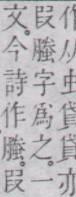 从虫貸貸亦
叚螣字爲之一
文。今詩作螣。叚